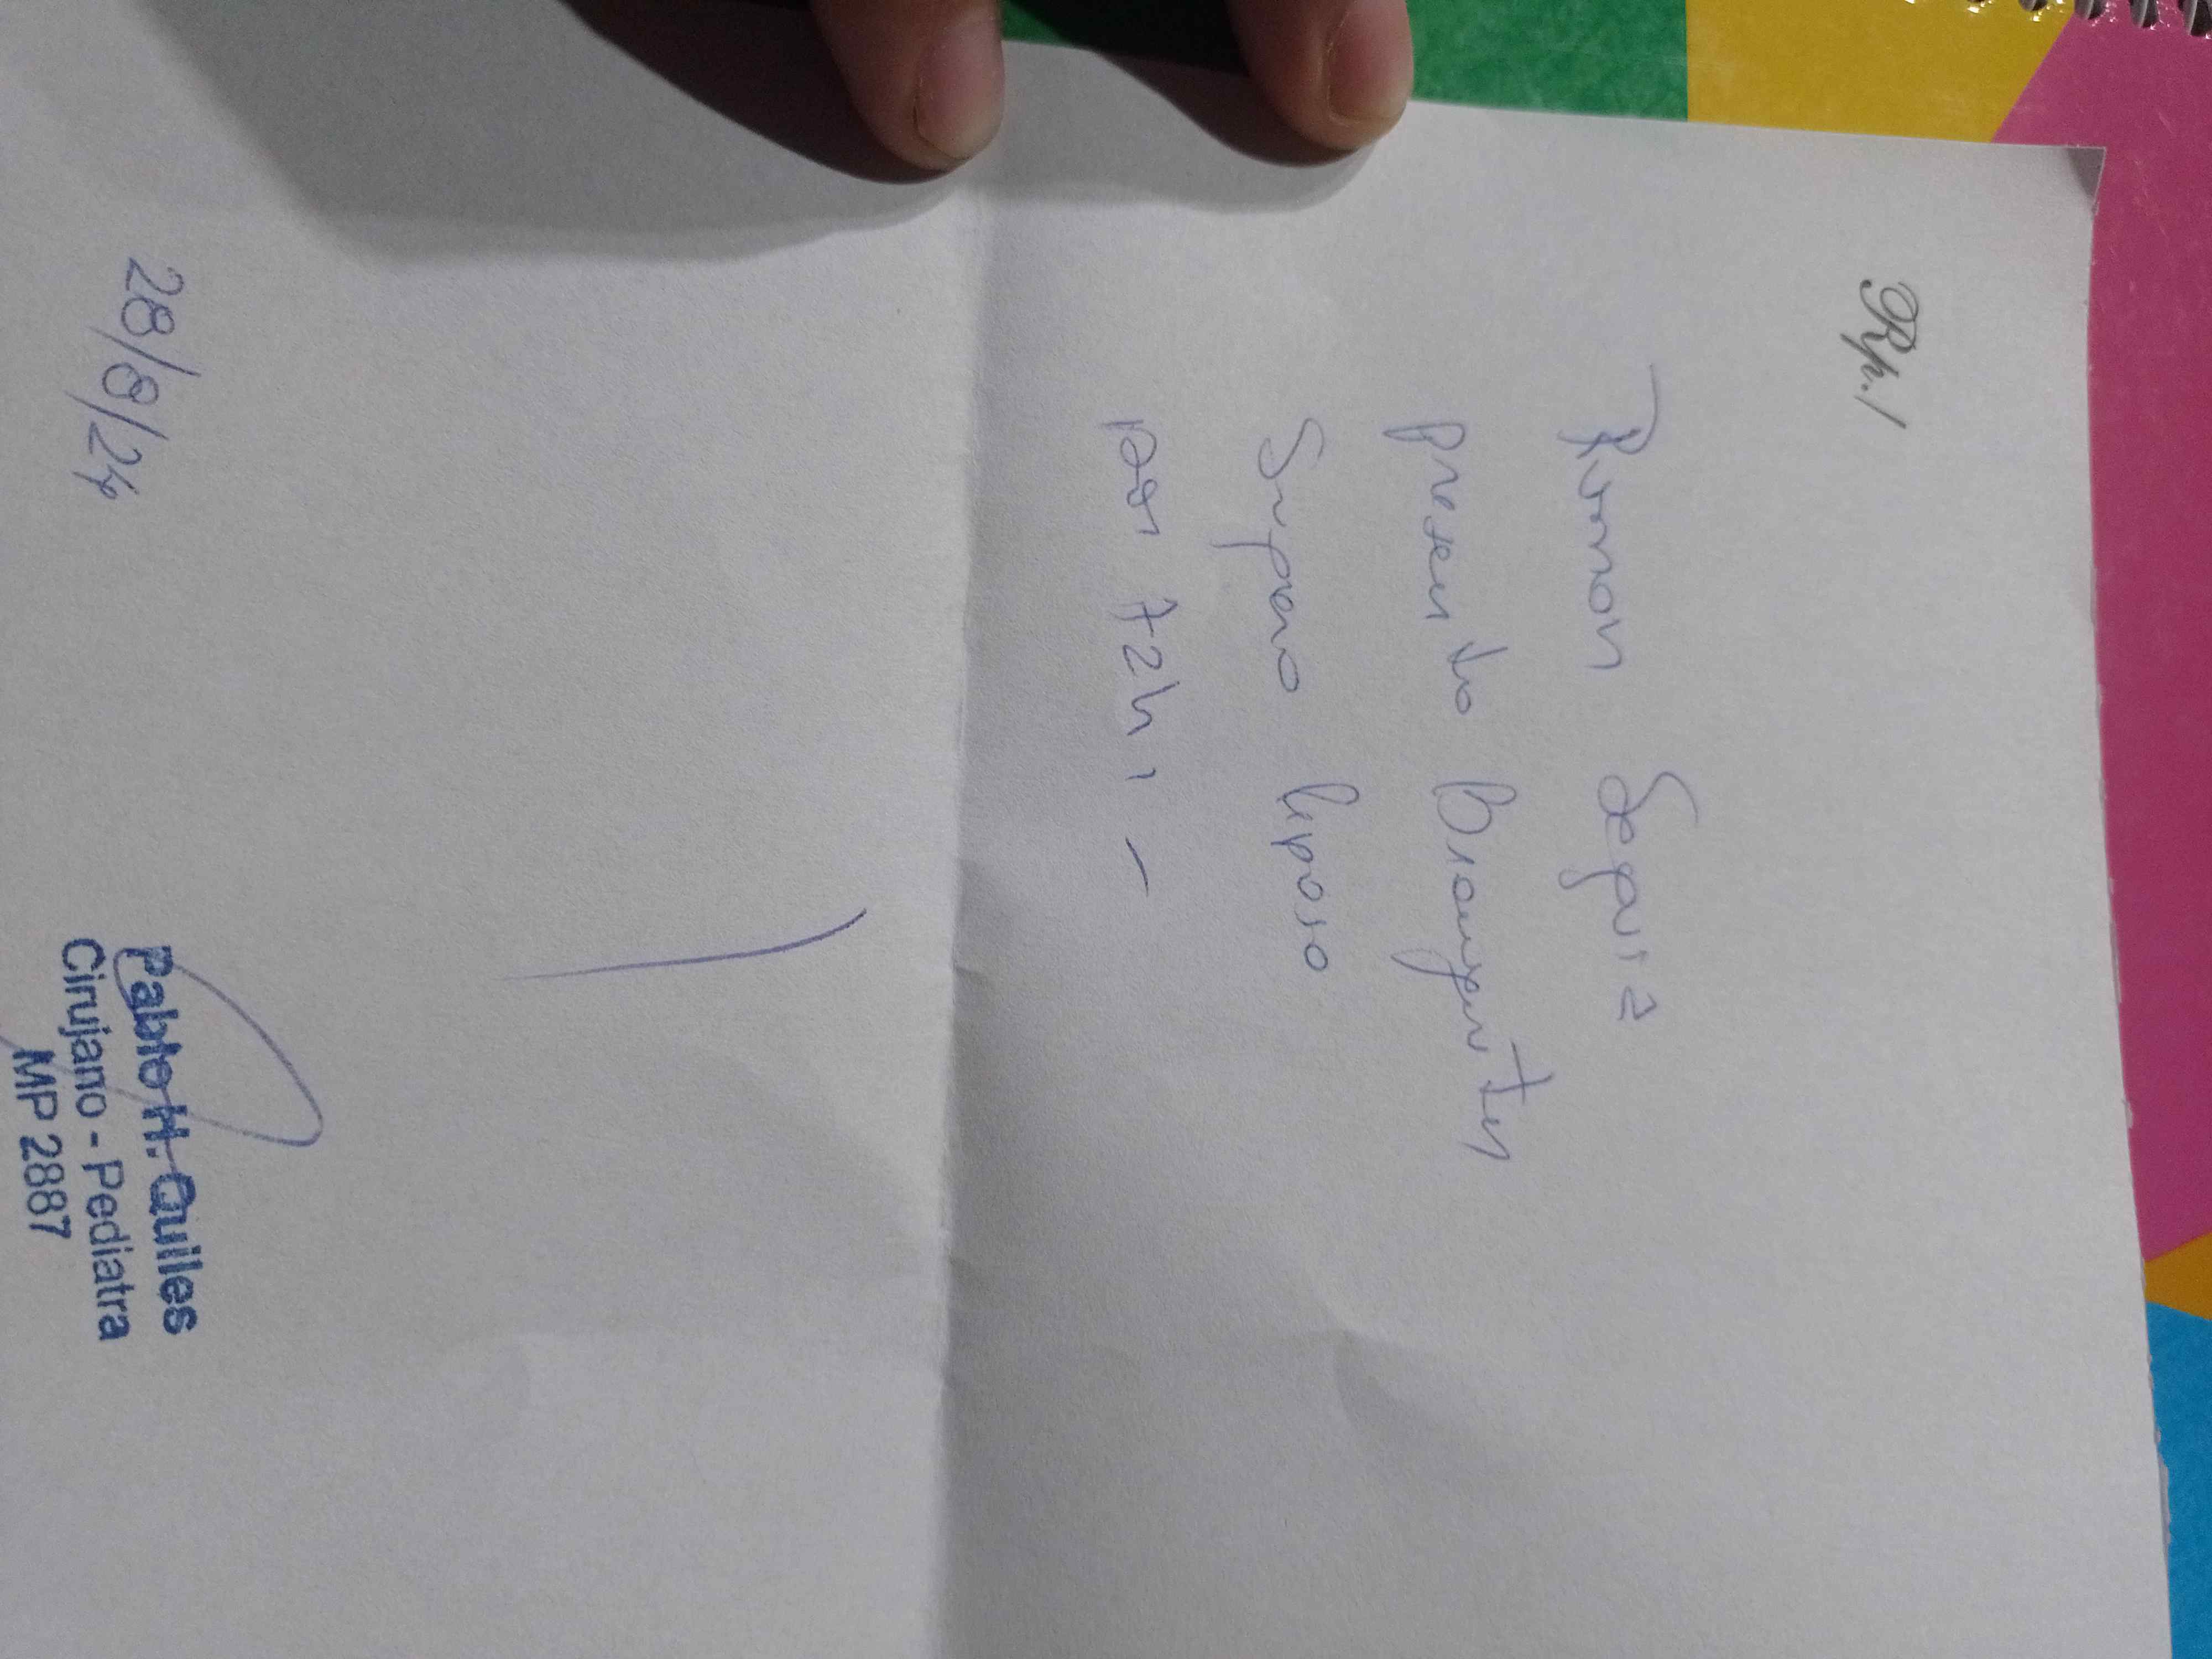 Rp./
Ramon Segura
presento Broncoespasmo
Sugiero Reposo
por 72h, -
28/8/24
Pablo H. Quilles
Cirujano - Pediatra
MP 2887